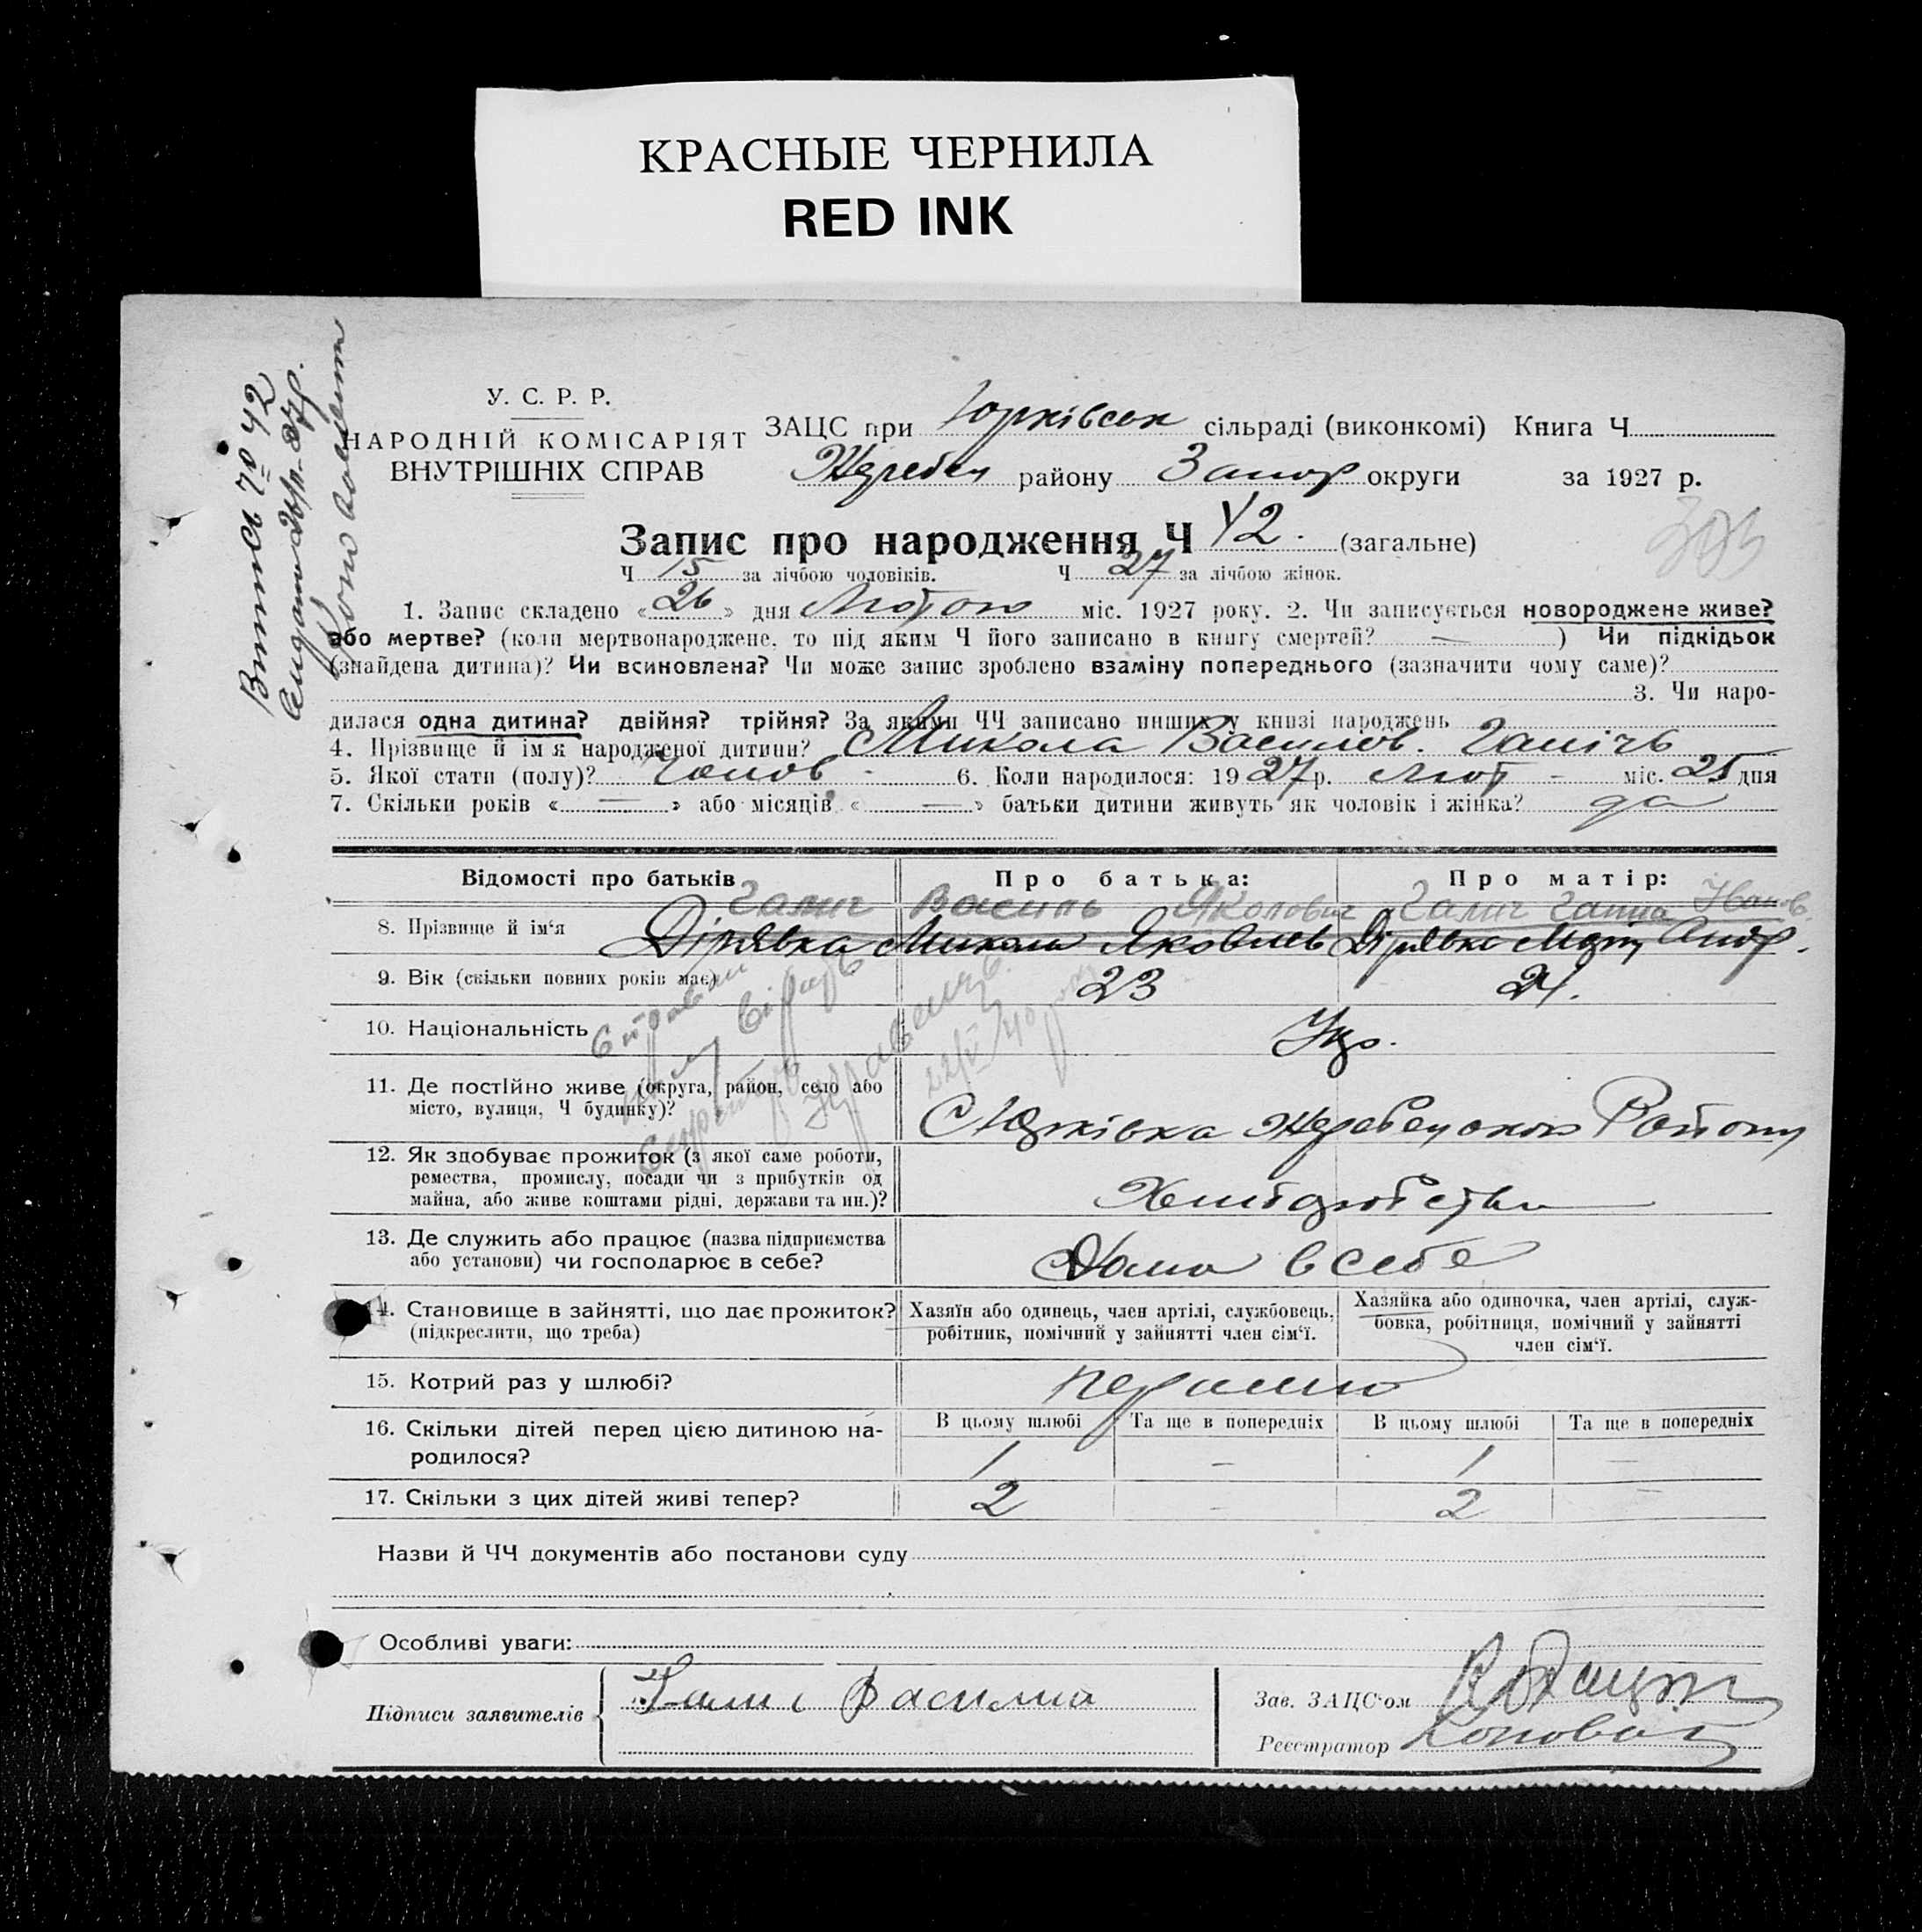 КРАСНЫЕ ЧЕРНИЛА
RED INK
У. С. Р. Р.
НАРОДНІЙ КОМІСАРІЯТ
ВНУТРІШНІХ СПРАВ
ЗАЦС при Юрківськ сільраді (виконкомі) Книга Ч
Жеребец району Запор округи за 1927 р.
Витяг 42
Запис про народження Ч 42. (загальне)
Ч 15 за лічбою чоловіків. Ч 27 за лічбою жінок.
1. Запис складено «26» дня Лютого міс. 1927 року. 2. Чи записується новороджене живе?
або мертве? (коли мертвонароджене, то під яким Ч його записано в книгу смертей? —) Чи підкідьок
(знайдена дитина)? Чи всиновлена? Чи може запис зроблено взаміну попереднього (зазначити чому саме)?
3. Чи наро-
дилася одна дитина? двійня? трійня? За якими ЧЧ записано инших у книзі народжень
4. Прізвище й ім'я народженої дитини? Микола Васильов. Галічь
5. Якої стати (полу)? Чолов - 6. Коли народилося: 1927 р. Лют - міс. 25 дня
7. Скільки років « — » або місяців « — » батьки дитини живуть як чоловік і жінка? да
Відомості про батьків Про батька: Про матір:
Галич Василь Яколович Галич Ганна Іванов.
8. Прізвище й ім'я Дірявка Микола Яковлев Дірявка Андр.
9. Вік (скільки повних років має) 23 21.
10. Національність Укр.
22/V 40
11. Де постійно живе (округа, район, село або
місто, вулиця, Ч будинку)?
С Юрківка Жеребецького Району
12. Як здобуває прожиток (з якої саме роботи,
ремества, промислу, посади чи з прибутків од
майна, або живе коштами рідні, держави та ин.)?
Хліборобство
13. Де служить або працює (назва підприємства
або установи) чи господарює в себе?
Дома в себе
14. Становище в зайнятті, що дає прожиток?
(підкреслити, що треба)
Хазяїн або одинець, член артілі, службовець,
робітник, помічний у зайнятті член сім'ї.
Хазяйка або одиночка, член артілі, служ-
бовка, робітниця, помічний у зайнятті
член сім'ї.
15. Котрий раз у шлюбі?
16. Скільки дітей перед цією дитиною на-
родилося?
В цьому шлюбі Та ще в попередніх В цьому шлюбі Та ще в попередніх
1 — 1 —
17. Скільки з цих дітей живі тепер? 2 - 2 -
Назви й ЧЧ документів або постанови суду
Особливі уваги:
Підписи заявителів
Галич Василий
Зав. ЗАЦС'ом
Реєстратор